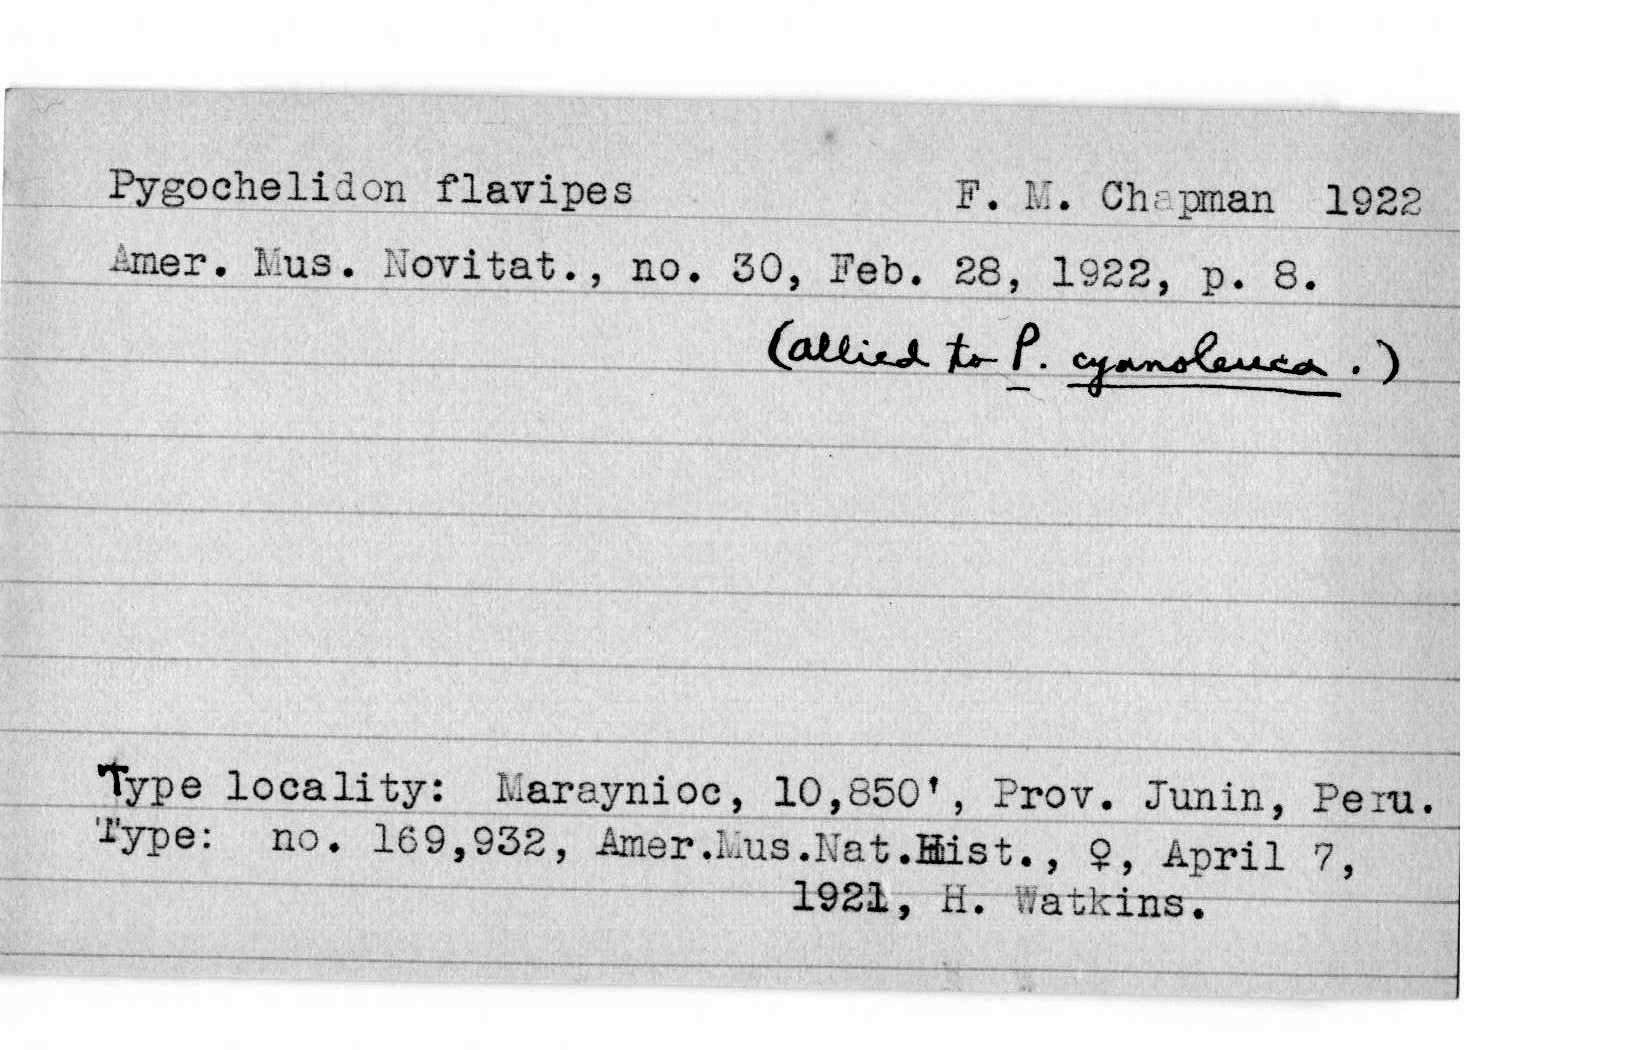 Pygochelidon flavipes F. M. Chapman 1922
Amer. Mus. Novitat., no. 30, Feb. 28, 1922, p. 8.
(allied to P. cyanoleuca.)
Type locality: Maraynioc, 10,850', Prov. Junin, Peru.
Type: no. 169,932, Amer.Mus.Nat.Hist., ♀, April 7,
1921, H. Watkins.